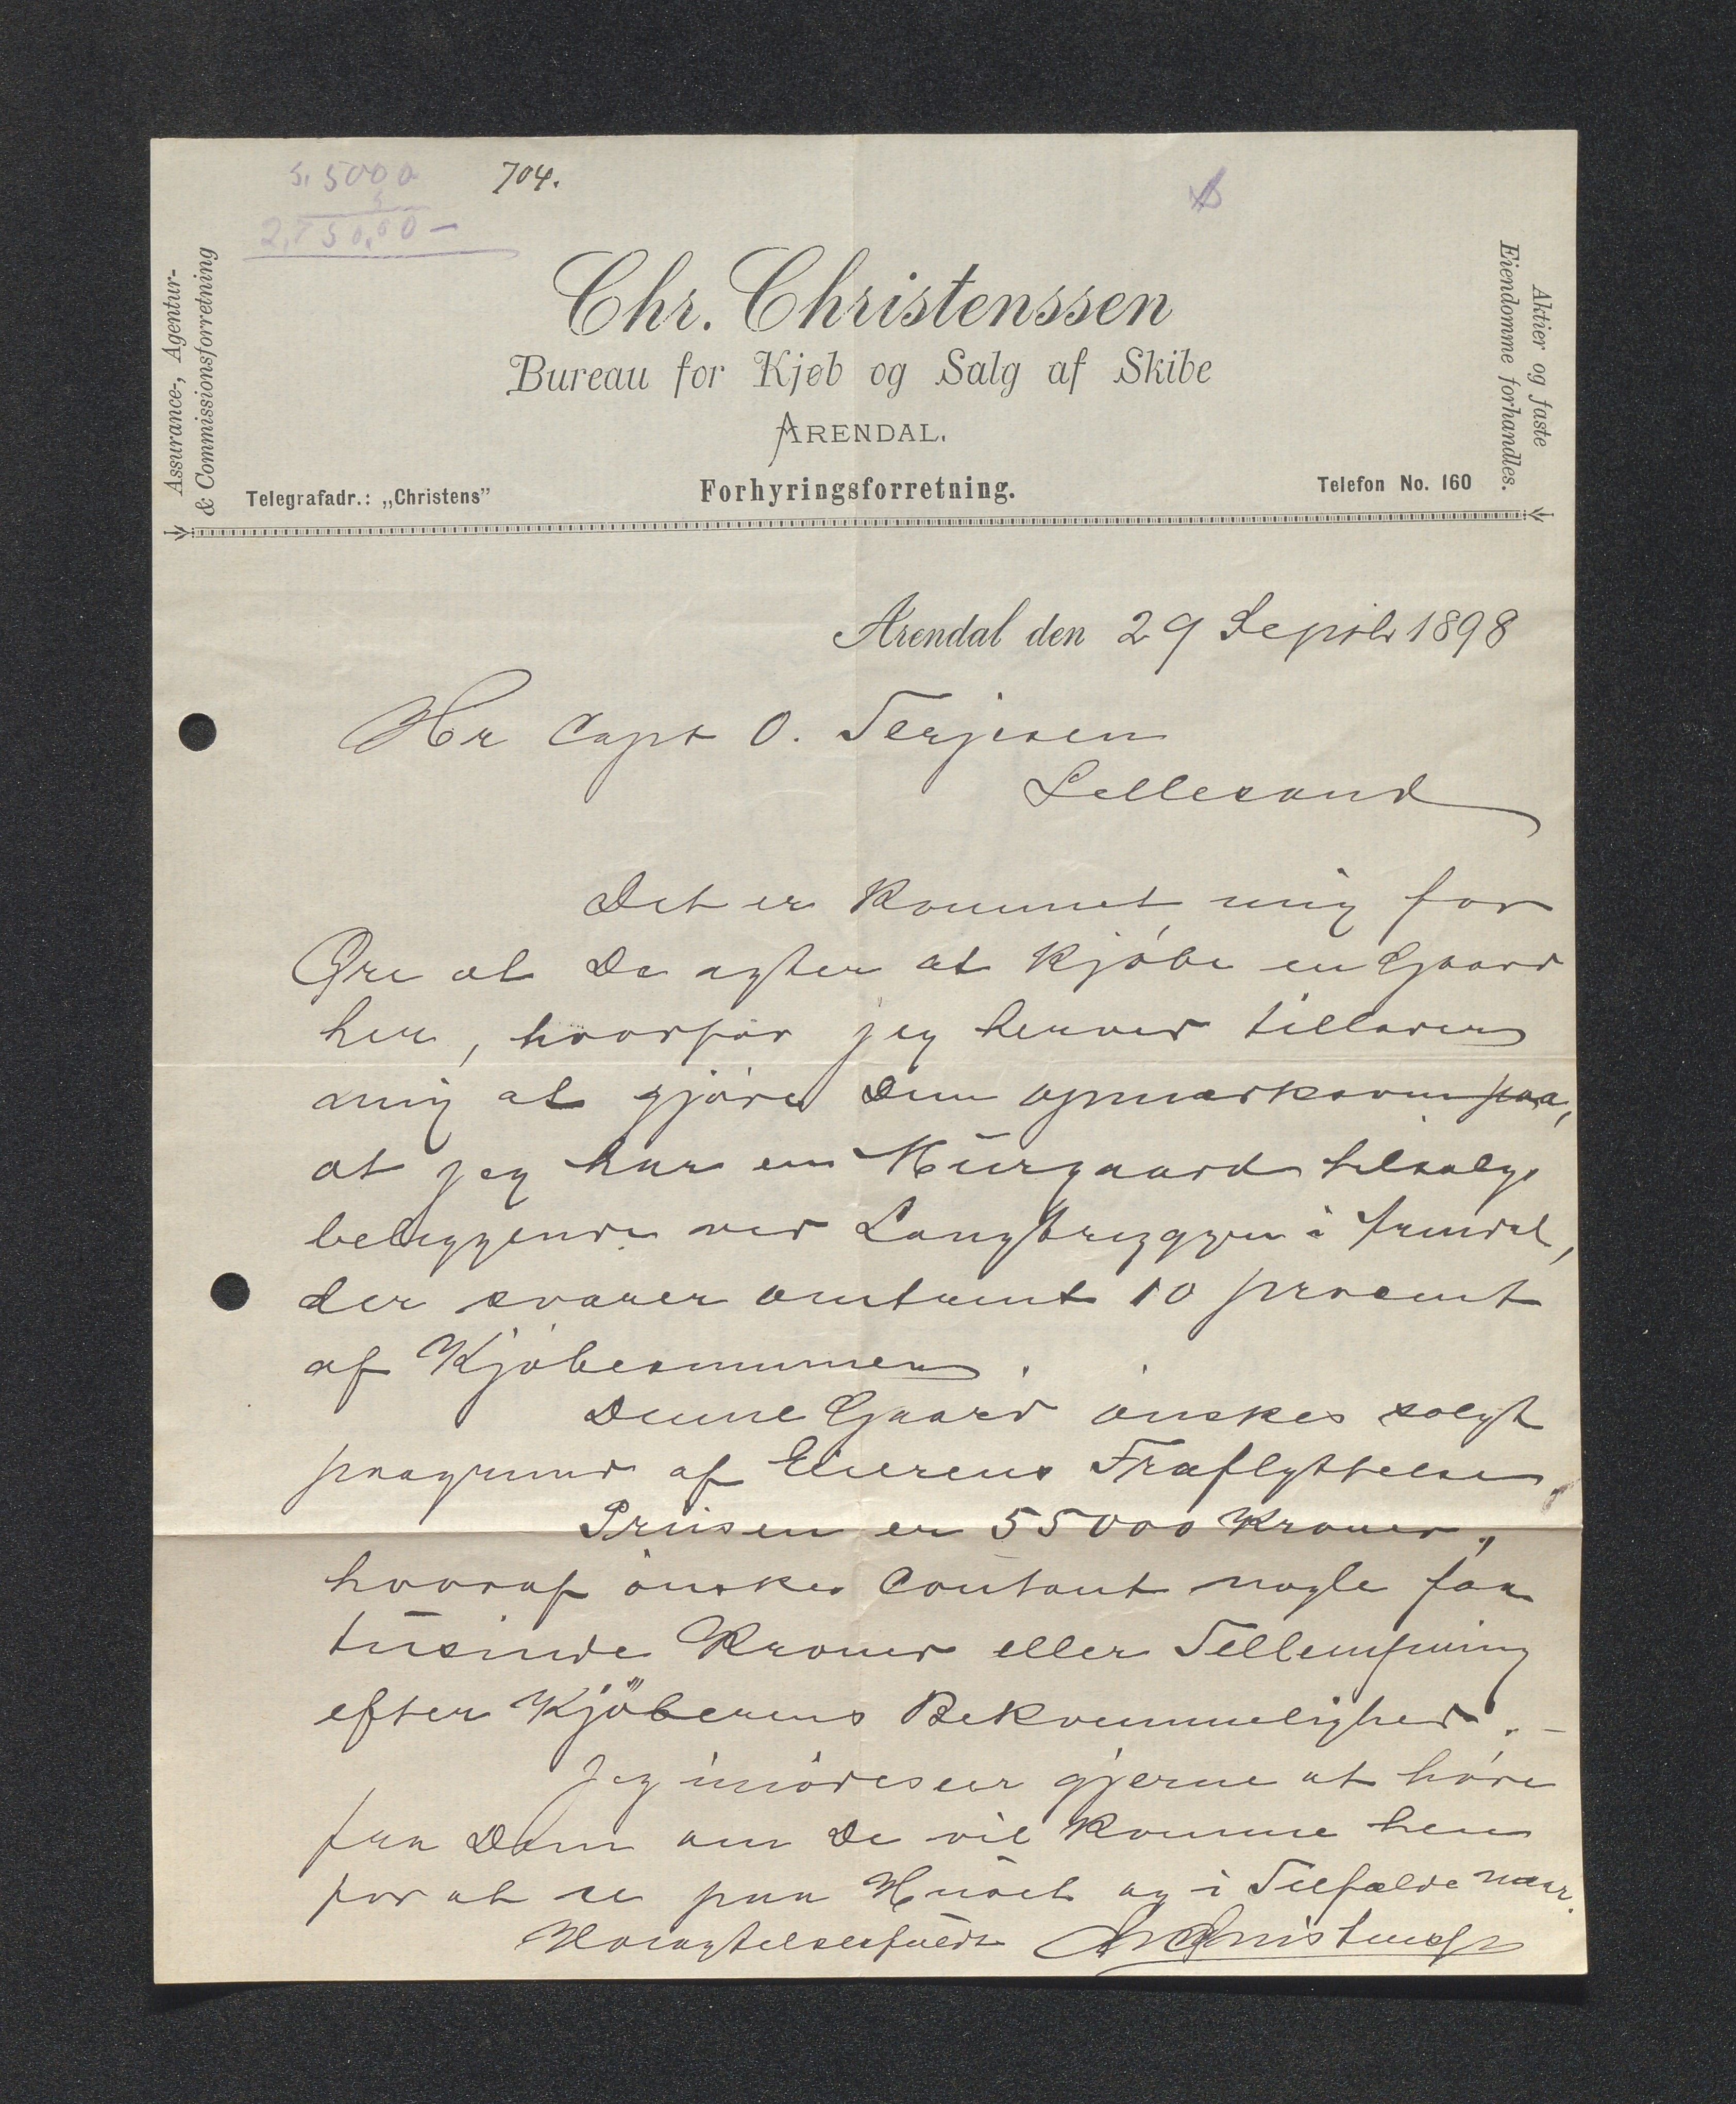 5,5000
704.
5
2,750,00 —
Assurance-, Agentur-
& Commissionsforretning
Chr. Christenssen
Bureau for Kjøb og Salg af Skibe
ARENDAL.
Aktier og faste
Eiendomme forhandles.
Telegrafadr.: „Christens”
Forhyringsforretning.
Telefon No. 160
Arendal den 29 Septbr 1898
Hr Capt O. Terjesen
Lillesand
Det er kommet mig for
Øre at De agter at kjøbe en Gaard
her, hvorfor jeg herved tillader
mig at gjøre Dem opmærksom paa,
at jeg har en Murgaard tilsalgs
beliggende ved Langbryggen i Arendal,
der svarer omtrent 10 procent
af Kjøbesummen.
Denne Gaard ønskes solgt
paagrund af Eierens Fraflyttelse.
Prisen er 55000 Kroner,
hvoraf ønskes Contant nogle faa
tusinde Kroner eller Tillempning
efter Kjøberens Bekvemmelighed. —
Jeg imødeseer gjerne at høre
fra Dem om De vil komme her
for at se paa Huset og i Tilfælde naar.
Høiagtelsesfuldt Chr Christenssen